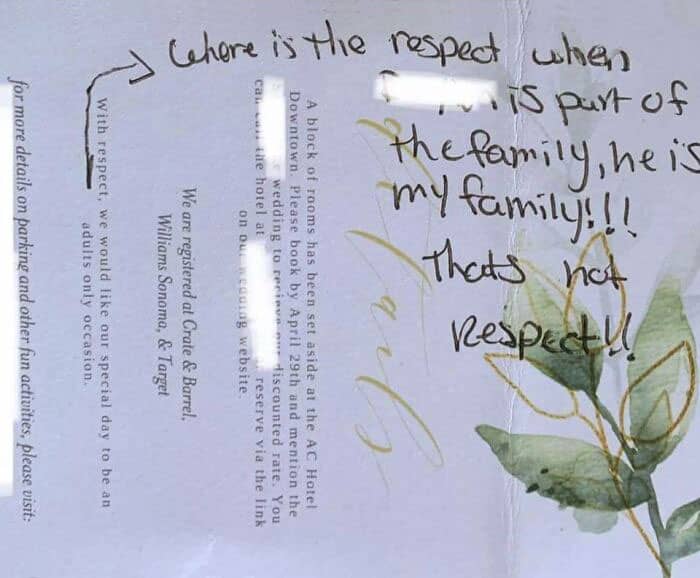 Where is the respect when
is part of
the family, he is
my family!!!
Thats not
Respect!!
A block of rooms has been set aside at the AC Hotel
Downtown. Please book by April 29th and mention the
wedding to receive our discounted rate. You
can call the hotel at reserve via the link
on our wedding website.
We are registered at Crate & Barrel,
Williams Sonoma, & Target
With respect, we would like our special day to be an
adults only occasion.
for more details on parking and other fun activities, please visit: